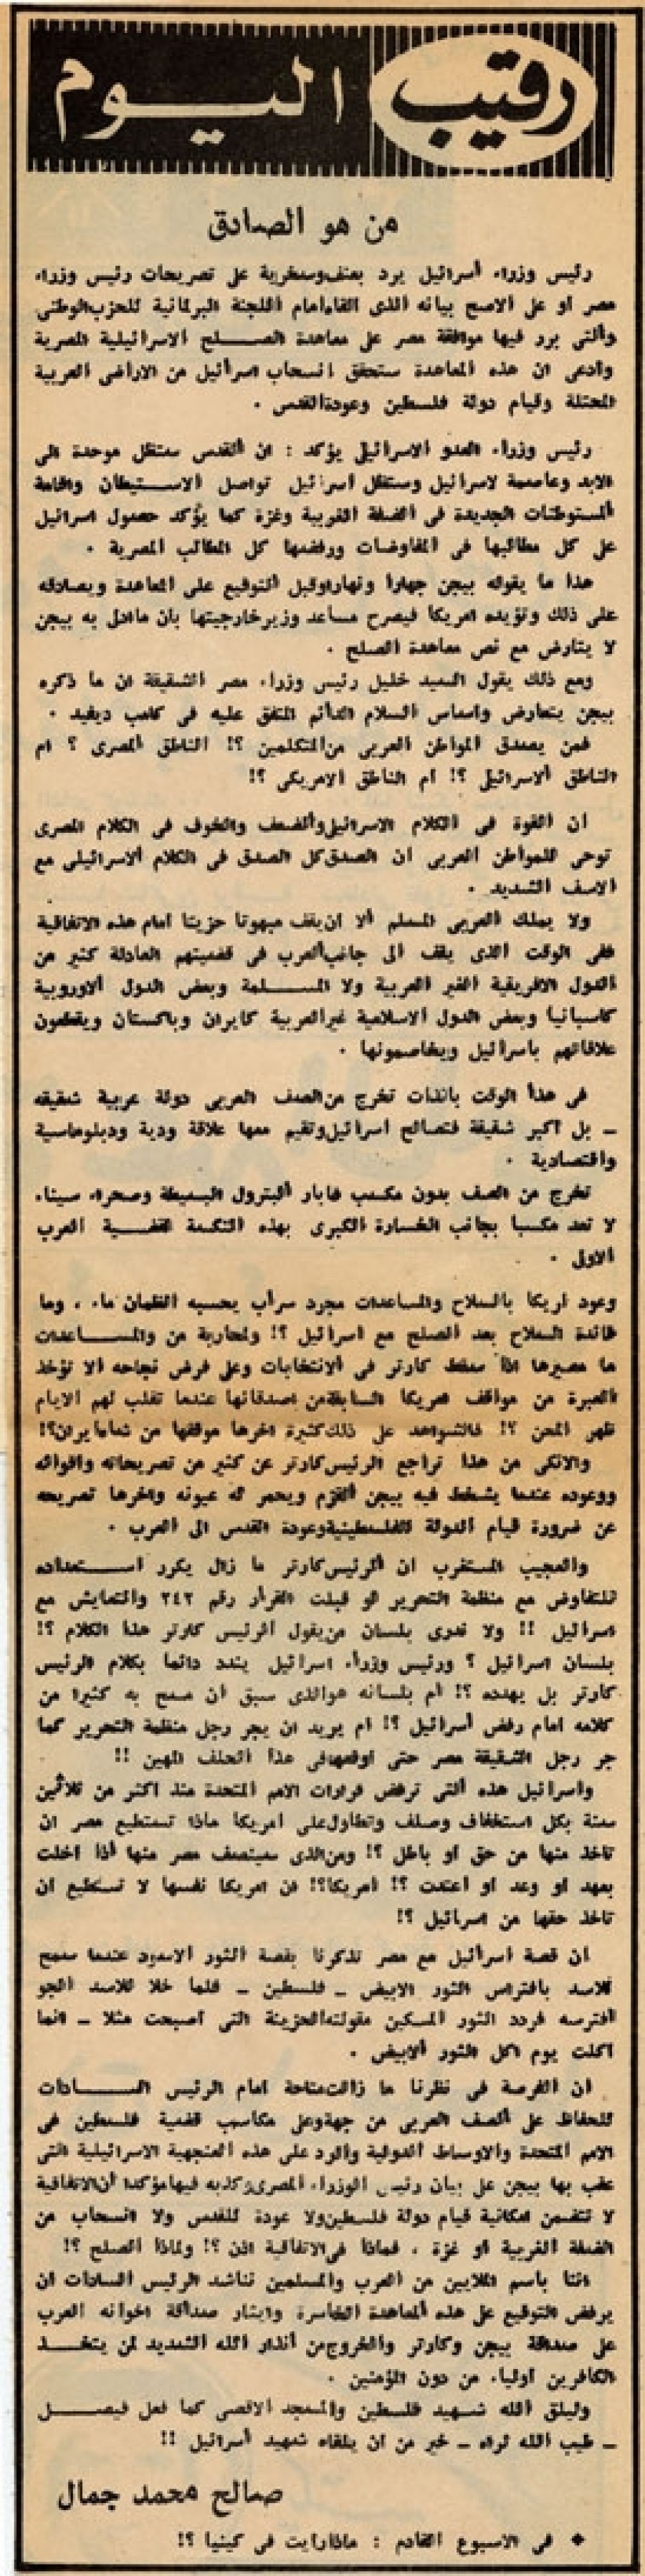 رقيب اليوم
من هو الصادق
رئيس وزراء أسرائيل يرد بعنف وسخرية على تصريحات رئيس وزراء
مصر أو على الاصح بيانه الذى القاه امام اللجنة البرلمانية للحزب الوطنى
والتى برر فيها موافقة مصر على معاهدة الصلح الاسرائيلية المصرية
وادعى ان هذه المعاهدة ستحقق انسحاب اسرائيل من الاراضى العربية
المحتلة وقيام دولة فلسطين وعودة القدس .
رئيس وزراء العدو الاسرائيلى يؤكد : ان القدس ستظل موحدة الى
الابد وعاصمة لاسرائيل وستظل اسرائيل تواصل الاستيطان واقامة
المستوطنات الجديدة فى الضفة الغربية وغزة كما يؤكد حصول اسرائيل
على كل مطالبها فى المفاوضات ورفضها كل المطالب المصرية .
هذا ما يقوله بيجن جهارا ونهارا وقبل التوقيع على المعاهدة ويصادقه
على ذلك وتؤيده امريكا فيصرح مساعد وزير خارجيتها بأن ما ادلى به بيجن
لا يتعارض مع نص معاهدة الصلح .
ومع ذلك يقول السيد خليل رئيس وزراء مصر الشقيقة ان ما ذكره
بيجن يتعارض واساس السلام الدائم المتفق عليه فى كامب ديفيد .
فمن يصدق المواطن العربى من المتكلمين ؟! الناطق المصرى ؟ ام
الناطق الاسرائيلى ؟! ام الناطق الامريكى ؟!
ان القوة فى الكلام الاسرائيلى والضعف والخوف فى الكلام المصرى
توحى للمواطن العربى ان الصدق كل الصدق فى الكلام الاسرائيلى مع
الاسف الشديد .
ولا يملك العربى المسلم الا ان يقف مبهوتا حزينا امام هذه الاتفاقية
ففى الوقت الذى يقف الى جانب العرب فى قضيتهم العادلة كثير من
الدول الافريقية الغير العربية ولا المسلمة وبعض الدول الاوروبية
كاسبانيا وبعض الدول الاسلامية غير العربية كايران وباكستان ويقطعون
علاقاتهم باسرائيل ويخاصمونها .
فى هذا الوقت بالذات تخرج من الصف العربى دولة عربية شقيقة
ـ بل اكبر شقيقة فتصالح اسرائيل وتقيم معها علاقة ودية ودبلوماسية
واقتصادية .
تخرج من الصف بدون مكسب فابار البترول البسيطة وصحراء سيناء
لا تعد مكسبا بجانب الخسارة الكبرى بهذه النكسة لقضية العرب
الاولى .
وعود امريكا بالسلاح والمساعدات مجرد سراب يحسبه الظمان ماء . وما
فائدة السلاح بعد الصلح مع اسرائيل ؟! ولمحاربة من والمساعدات
ما مصيرها اذا سقط كارتر فى الانتخابات وعلى فرض نجاحه الا تؤخذ
العبرة من مواقف امريكا السابقة من اصدقائها عندما تقلب لهم الايام
ظهر المجن ؟! فالشواهد على ذلك كثيرة اخرها موقفها من شاه ايران؟!
والانكى من هذا تراجع الرئيس كارتر عن كثير من تصريحاته واقواله
ووعوده عندما يشخط فيه بيجن القزم ويحمر له عيونه واخرها تصريحه
عن ضرورة قيام الدولة الفلسطينية وعودة القدس الى العرب .
والعجيب المستغرب ان الرئيس كارتر ما زال يكرر استعداده
للتفاوض مع منظمة التحرير لو قبلت القرار رقم ٢٤٢ والتعايش مع
اسرائيل !! ولا ندرى بلسان من يقول الرئيس كارتر هذا الكلام ؟!
بلسان اسرائيل ؟ ورئيس وزراء اسرائيل يندد دائما بكلام الرئيس
كارتر بل يهدده ؟! أم بلسانه هو الذى سبق أن مسح به كثيرا من
كلامه امام رفض أسرائيل ؟! ام يريد ان يجر رجل منظمة التحرير كما
جر رجل الشقيقة مصر حتى اوقعها فى هذا الحلف المهين !!
واسرائيل هذه التى ترفض قرارات الامم المتحدة منذ اكثر من ثلاثين
سنة بكل استخفاف وصلف وتطاول على امريكا ماذا تستطيع مصر ان
تاخذ منها من حق او باطل ؟! ومن الذى سينصف مصر منها اذا اخلت
بعهد او وعد او اعتدت ؟! امريكا؟! فن امريكا نفسها لا تستطيع ان
تاخذ حقها من اسرائيل ؟!
ان قصة اسرائيل مع مصر تذكرنا بقصة الثور الاسود عندما سمح
للاسد بافتراس الثور الابيض ـ فلسطين ـ فلما خلا للاسد الجو
افترسه فردد الثور المسكين مقولته الحزينة التى اصبحت مثلا ـ انما
اكلت يوم اكل الثور الابيض .
ان الفرصة فى نظرنا ما زالت متاحة امام الرئيس السادات
للحفاظ على الصف العربى من جهة وعلى مكاسب قضية فلسطين فى
الامم المتحدة والاوساط الدولية والرد على هذه العنجهية الاسرائيلية التى
عقب بها بيجن على بيان رئيس الوزراء المصرى وكذبه فيها مؤكدا ان الاتفاقية
لا تتضمن امكانية قيام دولة فلسطين ولا عودة للقدس ولا انسحاب من
الضفة الغربية أو غزة . فماذا فى الاتفاقية اذن ؟! ولماذا الصلح ؟!
اننا باسم الملايين من العرب والمسلمين نناشد الرئيس السادات ان
يرفض التوقيع على هذه المعاهدة الخاسرة وايثار صداقة اخوانه العرب
على صداقة بيجن وكارتر والخروج من أنذار الله الشديد لمن يتخذ
الكافرين اولياء من دون المؤمنين .
وليلق الله شهيد فلسطين والمسجد الاقصى كما فعل فيصل
ـ طيب الله ثراه ـ خير من ان يلقاه شهيد أسرائيل !!
صالح محمد جمال
◆ فى الاسبوع القادم : ماذا رايت فى كينيا ؟!